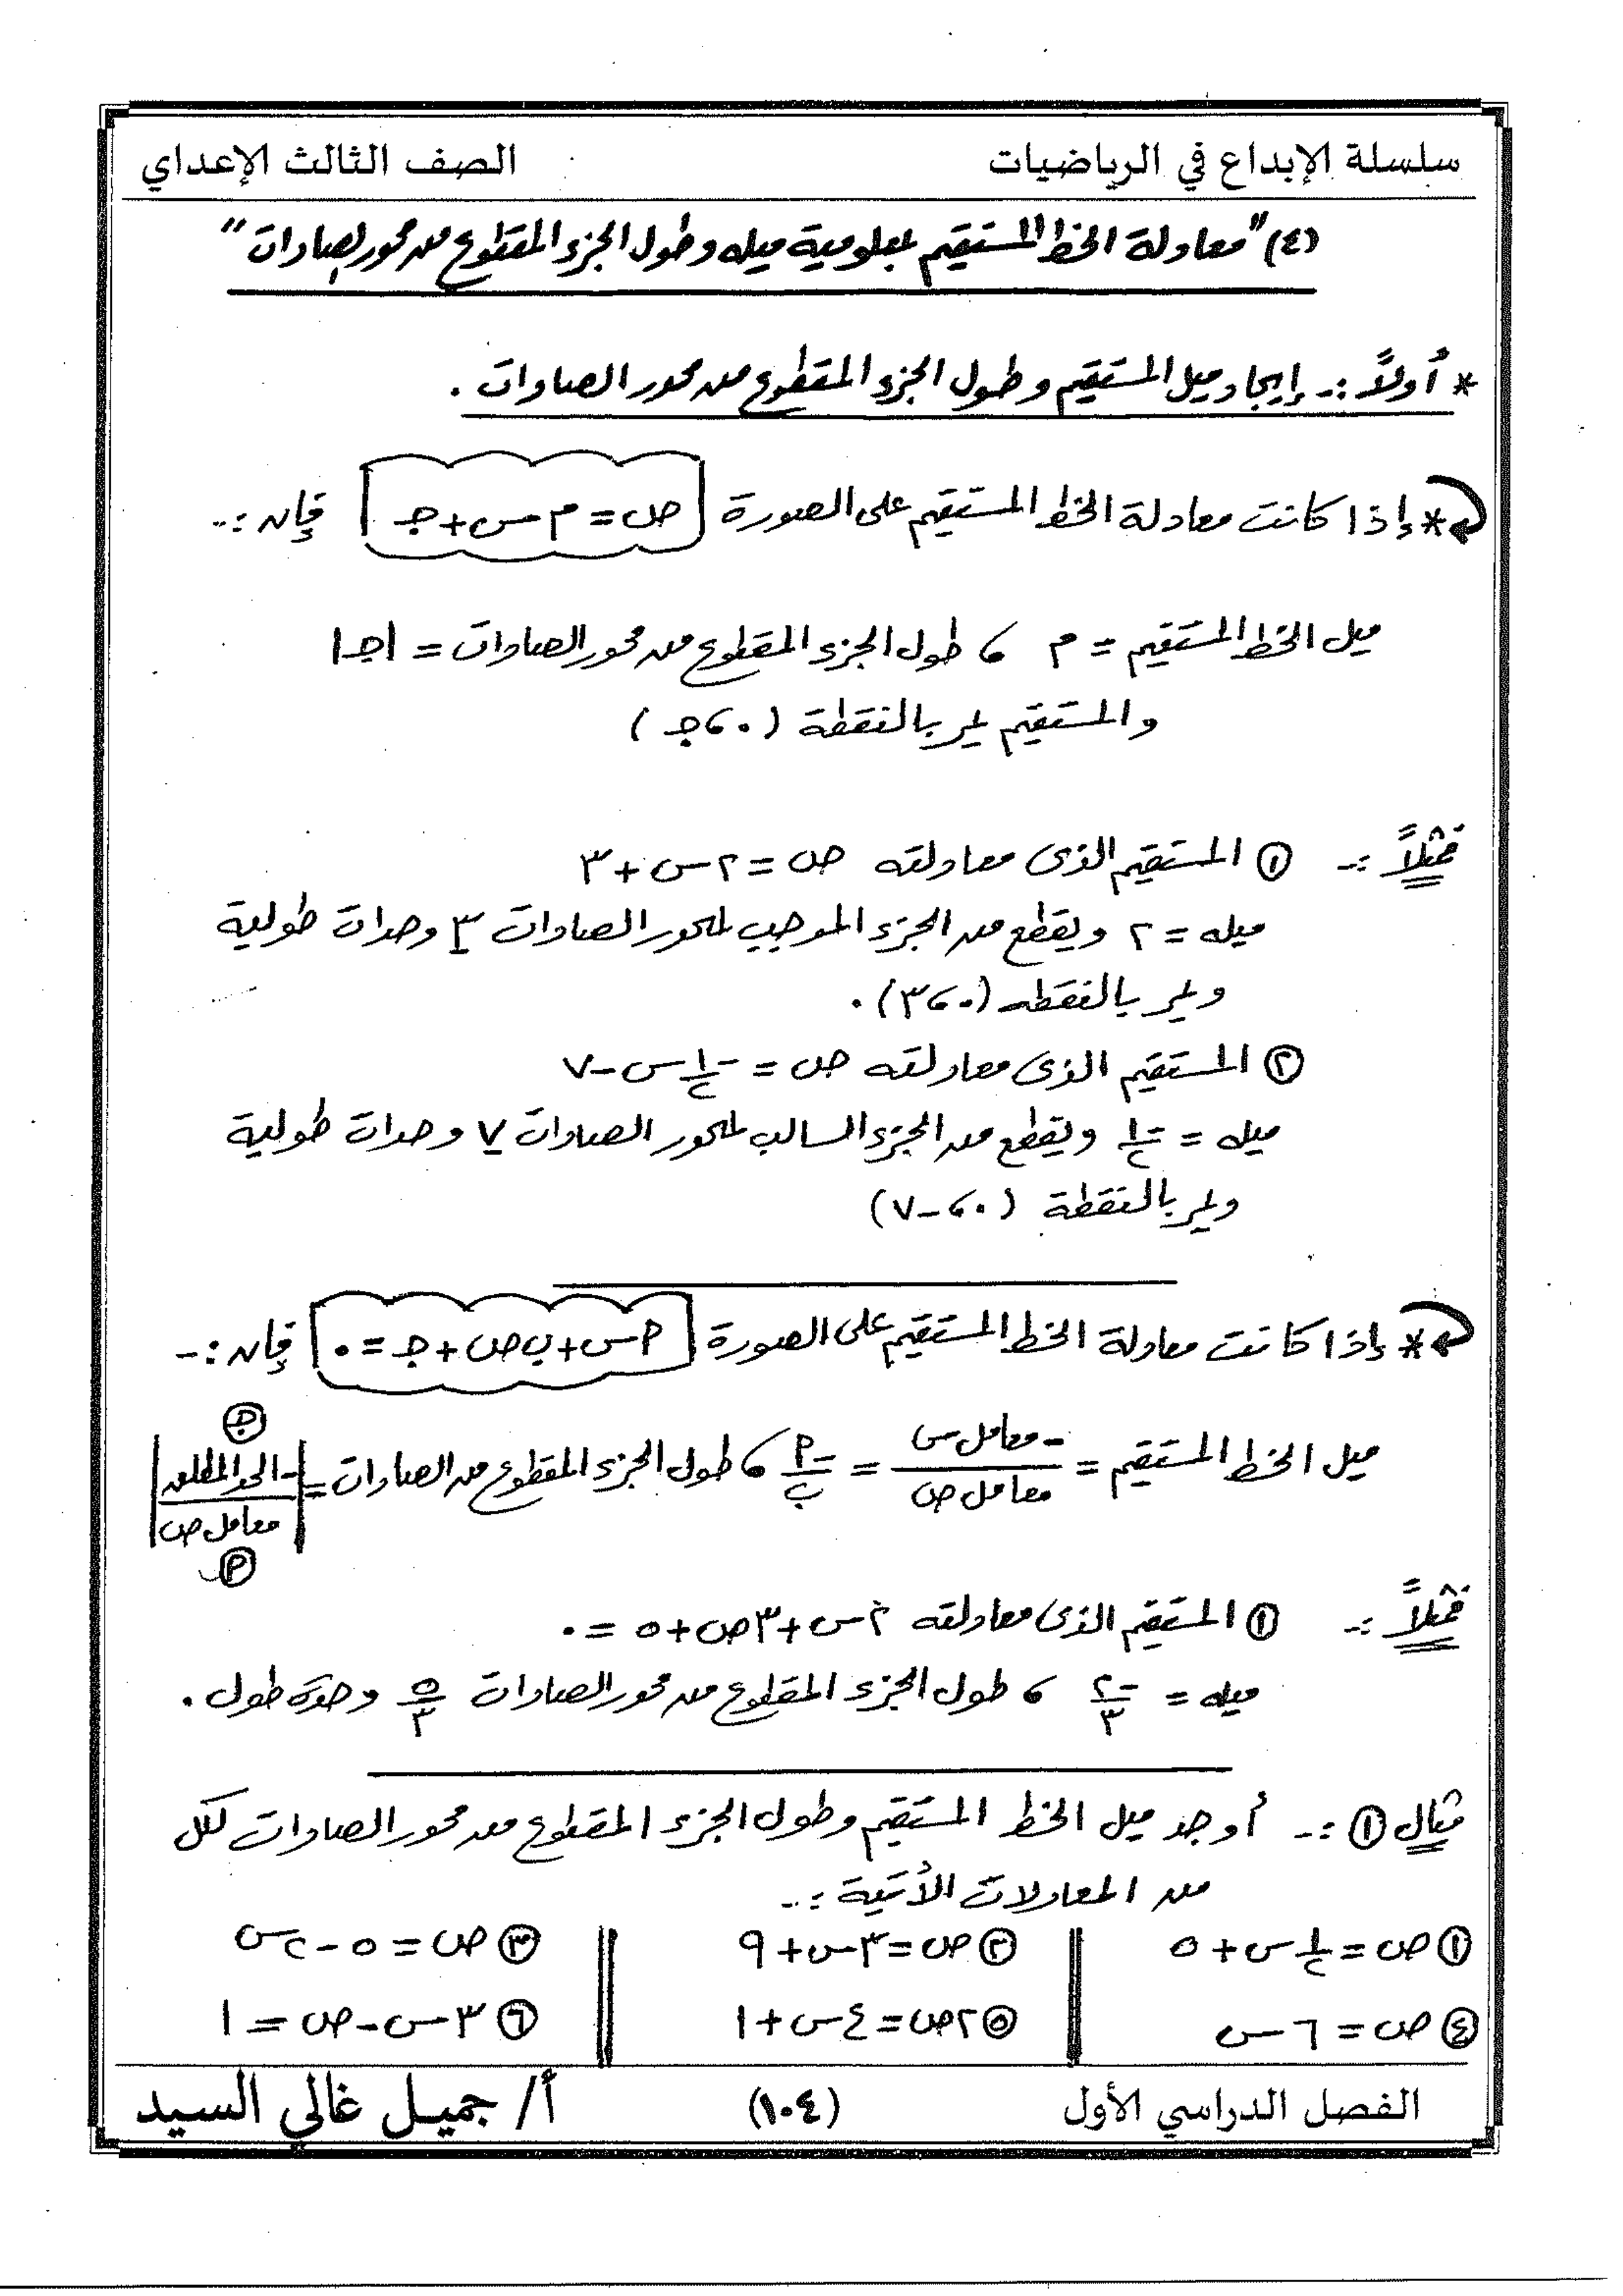 سلسلة الإبداع في الرياضيات
الصف الثالث الإعداي
(٤) "معادلة الخط المستقيم بمعلومية ميله وطول الجزء المقطوع من محور الصادات"
* أولاً :- إيجاد ميل المستقيم وطول الجزء المقطوع من محور الصادات .
* إذا كانت معادلة الخط المستقيم على الصورة ص = م س + جـ فإن :-
ميل الخط المستقيم = م ، طول الجزء المقطوع من محور الصادات = |جـ|
والمستقيم يمر بالنقطة (٠ ، جـ)
فمثلاً :- ① المستقيم الذى معادلته ص = ٢س + ٣
ميله = ٢ ويقطع من الجزء الموجب لمحور الصادات ٣ وحدات طولية
ويمر بالنقطة (٠ ، ٣) .
② المستقيم الذى معادلته ص = -١/٢ س - ٧
ميله = -١/٢ ويقطع من الجزء السالب لمحور الصادات ٧ وحدات طولية
ويمر بالنقطة (٠ ، -٧)
* إذا كانت معادلة الخط المستقيم على الصورة أس + ب ص + جـ = ٠ فإن :-
ميل الخط المستقيم = -معامل س / معامل ص = -أ/ب ، طول الجزء المقطوع من الصادات = |-الحد المطلق / معامل ص|
فمثلاً :- ① المستقيم الذى معادلته ٢س + ٣ص + ٥ = ٠
ميله = -٢/٣ ، طول الجزء المقطوع من محور الصادات ٥/٣ وحدة طول .
مثال ① :- أوجد ميل الخط المستقيم وطول الجزء المقطوع من محور الصادات لكل
من المعادلات الأتية :-
① ص = ١/٢ س + ٥
② ص = ٣س + ٩
③ ص = ٥ - ٢س
④ ص = ٦س
⑤ ٢ص = ٤س + ١
⑥ ٣س - ص = ١
الفصل الدراسي الأول
(١٠٤)
أ/ جميل غالي السيد